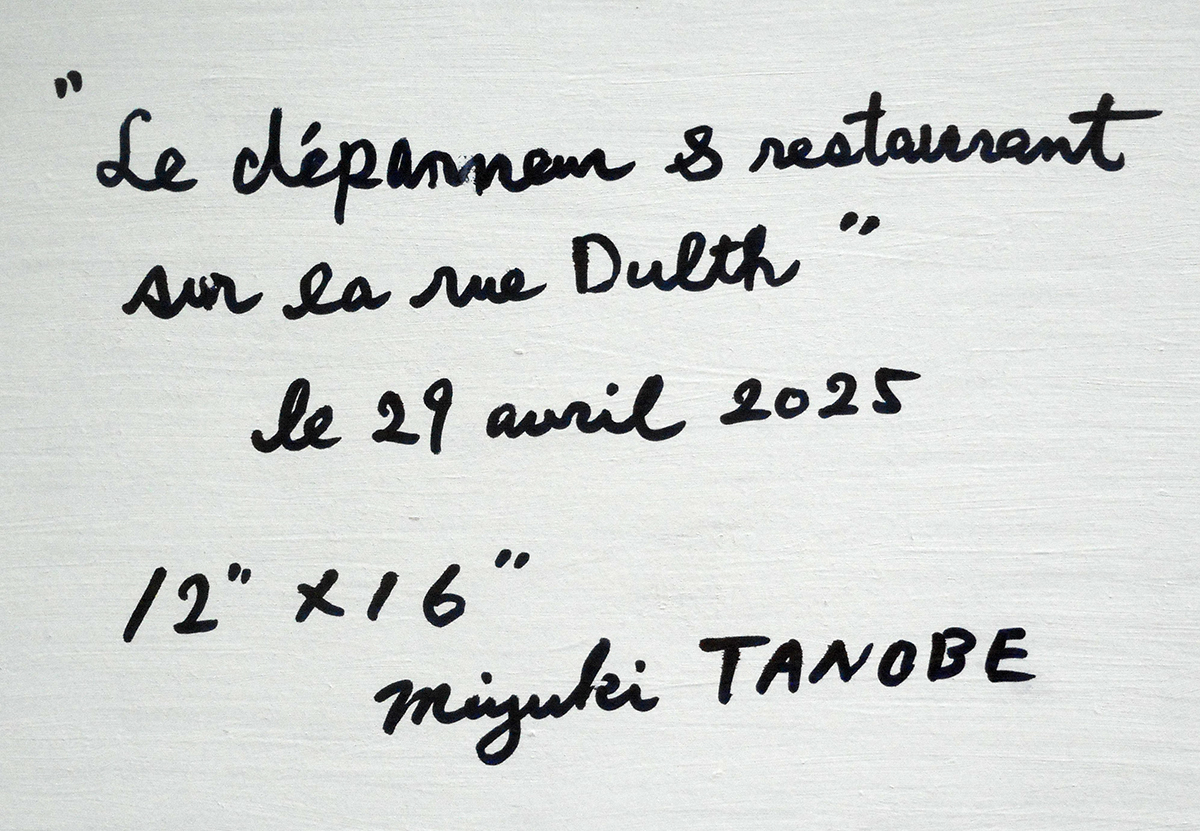 "Le dépanneur & restaurant
sur la rue Dulth"
le 29 avril 2025
12" x 16"
Miyuki TANOBE